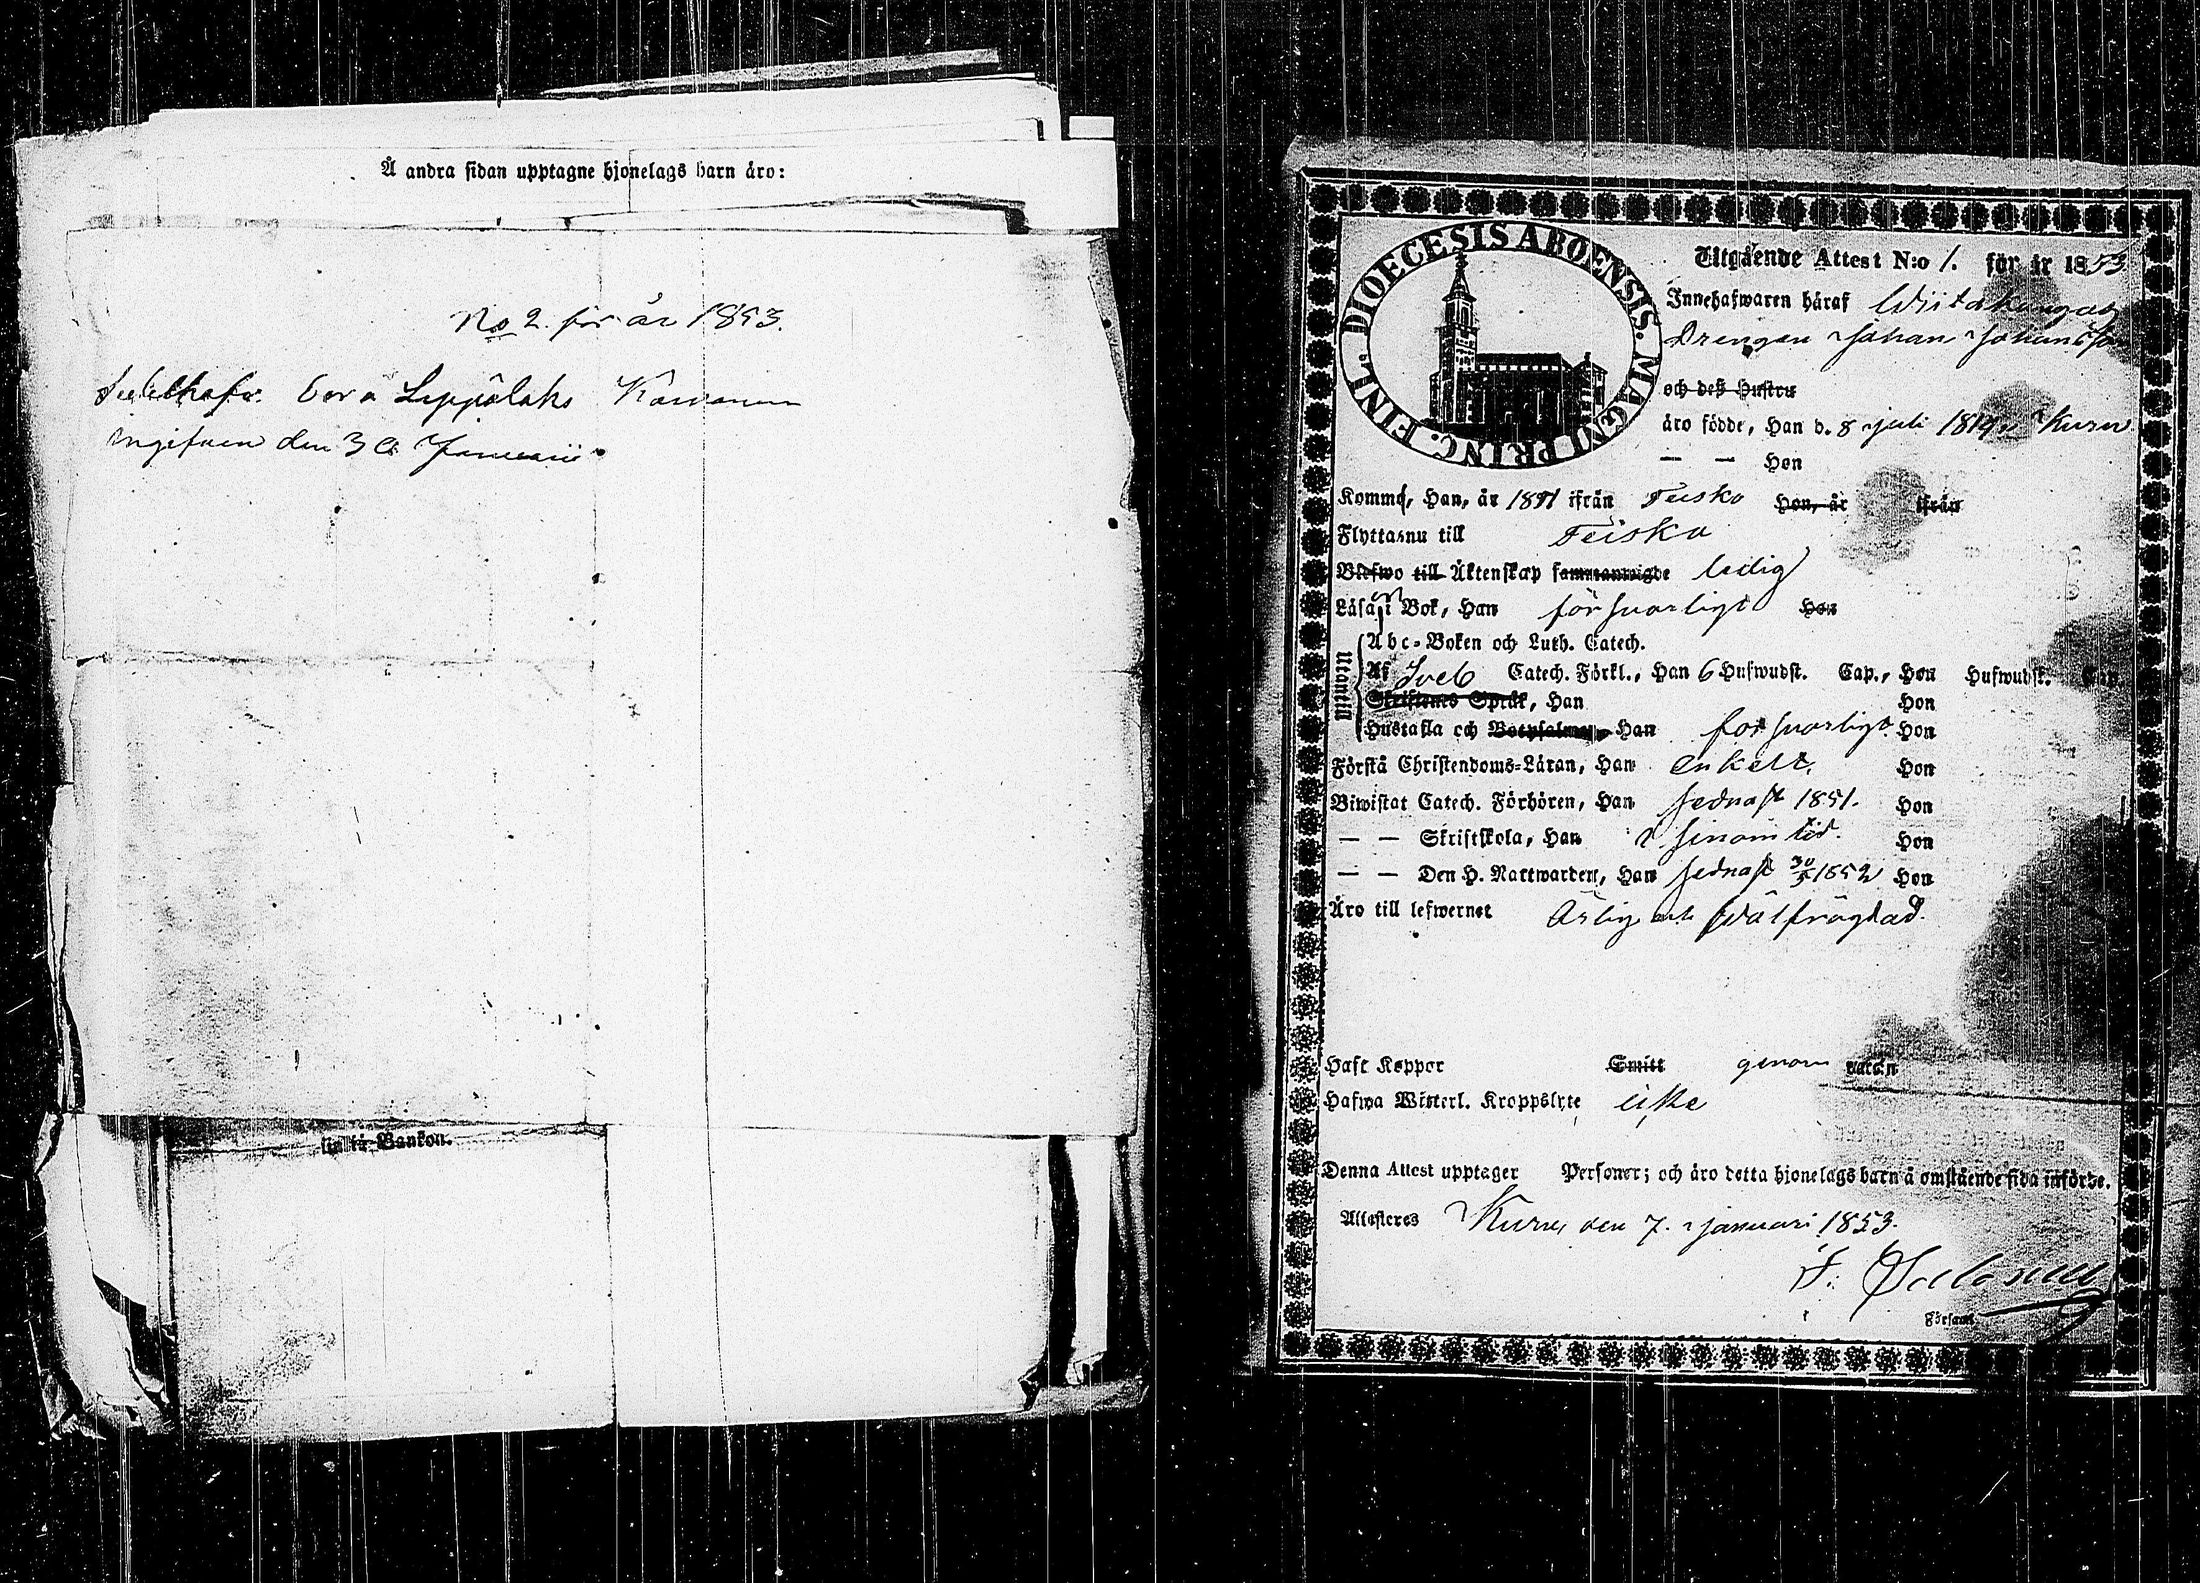 Å andra sidan upptagne hjonelags barn äro:
No 2. för år 1853.
bor a Leppälaks
Ingifven den 30 Januarii
sin tå Bankon.
DIOECESIS ABOENSIS. MAGNI PRINC. FINL.
Utgående Attest N:o 1. för år 1853
Innehafwaren häraf
Drengen Johan Johansson
och deß Hustru
äro födde, Han d. 8 juli 1819 i Kuru
— — Hon
Komme, Han, år 1851 ifrån Teisko Hon, år ifrån
Flyttas nu till Teisko
Blefwo till Äktenskap sammanwigde ledig
Läsa i Bok, Han försvarligt Hon
Utantill
Abc-Boken och Luth. Catech.
Af Sveb Catech. Förkl., Han 6 Hufwudst. Cap., Hon Hufwudst. Cap.
Skriftenes Språk, Han Hon
Hustafla och Botpsalmer, Han försvarligt Hon
Förstå Christendoms-Läran, Han enkelt. Hon
Biwistat Catech. Förhören, Han sednast 1851. Hon
— — Skriftskola, Han i sinom tid. Hon
— — Den H. Nattwarden, Han sednast 30/5 1852 Hon
Äro till lefwernet Ärlig och välfrägdad.
Haft Koppor Smitt genom
Hafwa Witterl. Kroppslyte icke
Denna Attest upptager Personer; och äro detta hjonelags barn å omstående sida införde.
Attesteras Kuru, den 7. januari 1853.